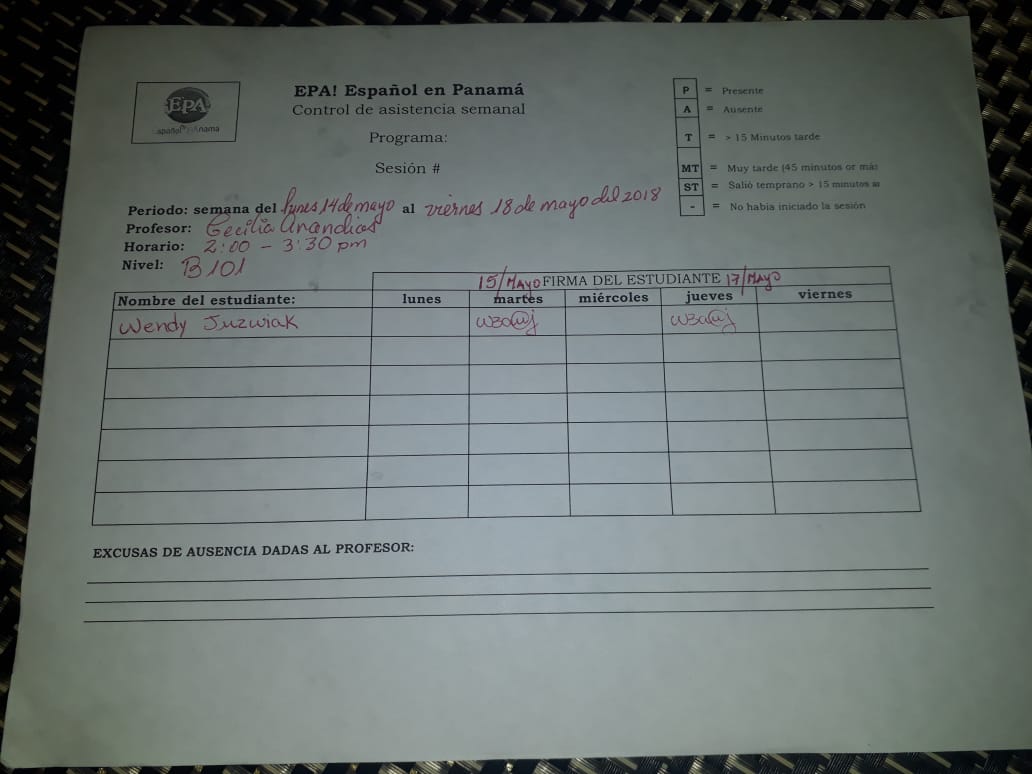 EPA
Español en Panama
EPA! Español en Panamá
Control de asistencia semanal
Programa:
Sesión #
P = Presente
A = Ausente
T = > 15 Minutos tarde
MT = Muy tarde (45 minutos or más
ST = Salió temprano > 15 minutos
- = No había iniciado la sesión
Periodo: semana del lunes 14 de mayo al viernes 18 de mayo del 2018
Profesor: Cecilia
Horario: 2:00 - 3:30 pm
Nivel: B101
15/Mayo FIRMA DEL ESTUDIANTE 17/Mayo
Nombre del estudiante: lunes martes miércoles jueves viernes
Wendy Juzwiak
EXCUSAS DE AUSENCIA DADAS AL PROFESOR: